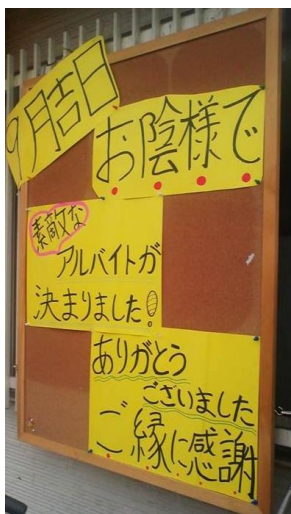 9月吉日
お陰様で
素敵な
アルバイトが
決まりました!
ありがとう
ございました
ご縁に感謝